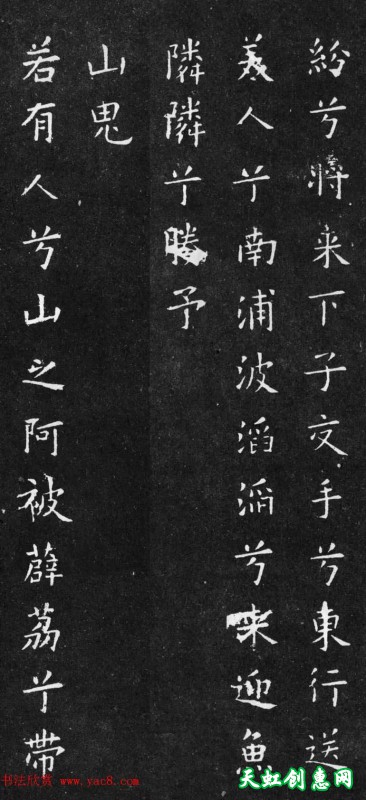 紛兮將来下子交手兮東行送
美人兮南浦波滔滔兮来迎魚
隣隣兮媵予
山鬼
若有人兮山之阿被薜荔兮带
书法欣赏 www.yac8.com
天虹创惠网